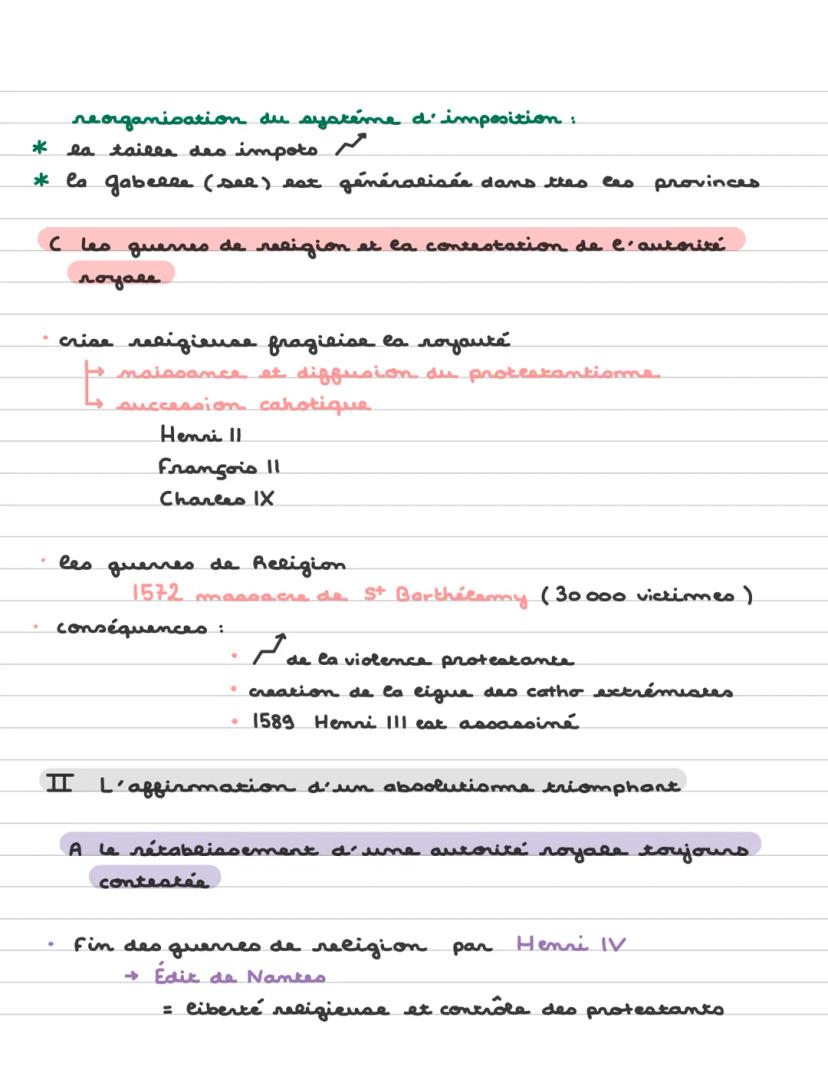 reorganisation du systéme d'imposition :
* la taille des impots ↗
* la gabelle (sel) est généralisée dans ttes les provinces
C les guerres de religion et la contestation de l'autorité
royale
· crise religieuse fragilise la royauté
→ naissance et diffusion du protestantisme
→ succession cahotique
Henri II
François II
Charles IX
· les guerres de Religion
1572 massacre de St Barthélemy (30 000 victimes)
· conséquences :
· ↗ de la violence protestante
· creation de la ligue des catho extrémistes
· 1589 Henri III est assassiné
II L'affirmation d'un absolutisme triomphant
A le rétablissement d'une autorité royale toujours
contestée
· Fin des guerres de religion par Henri IV
→ Édit de Nantes
= liberté religieuse et contrôle des protestants